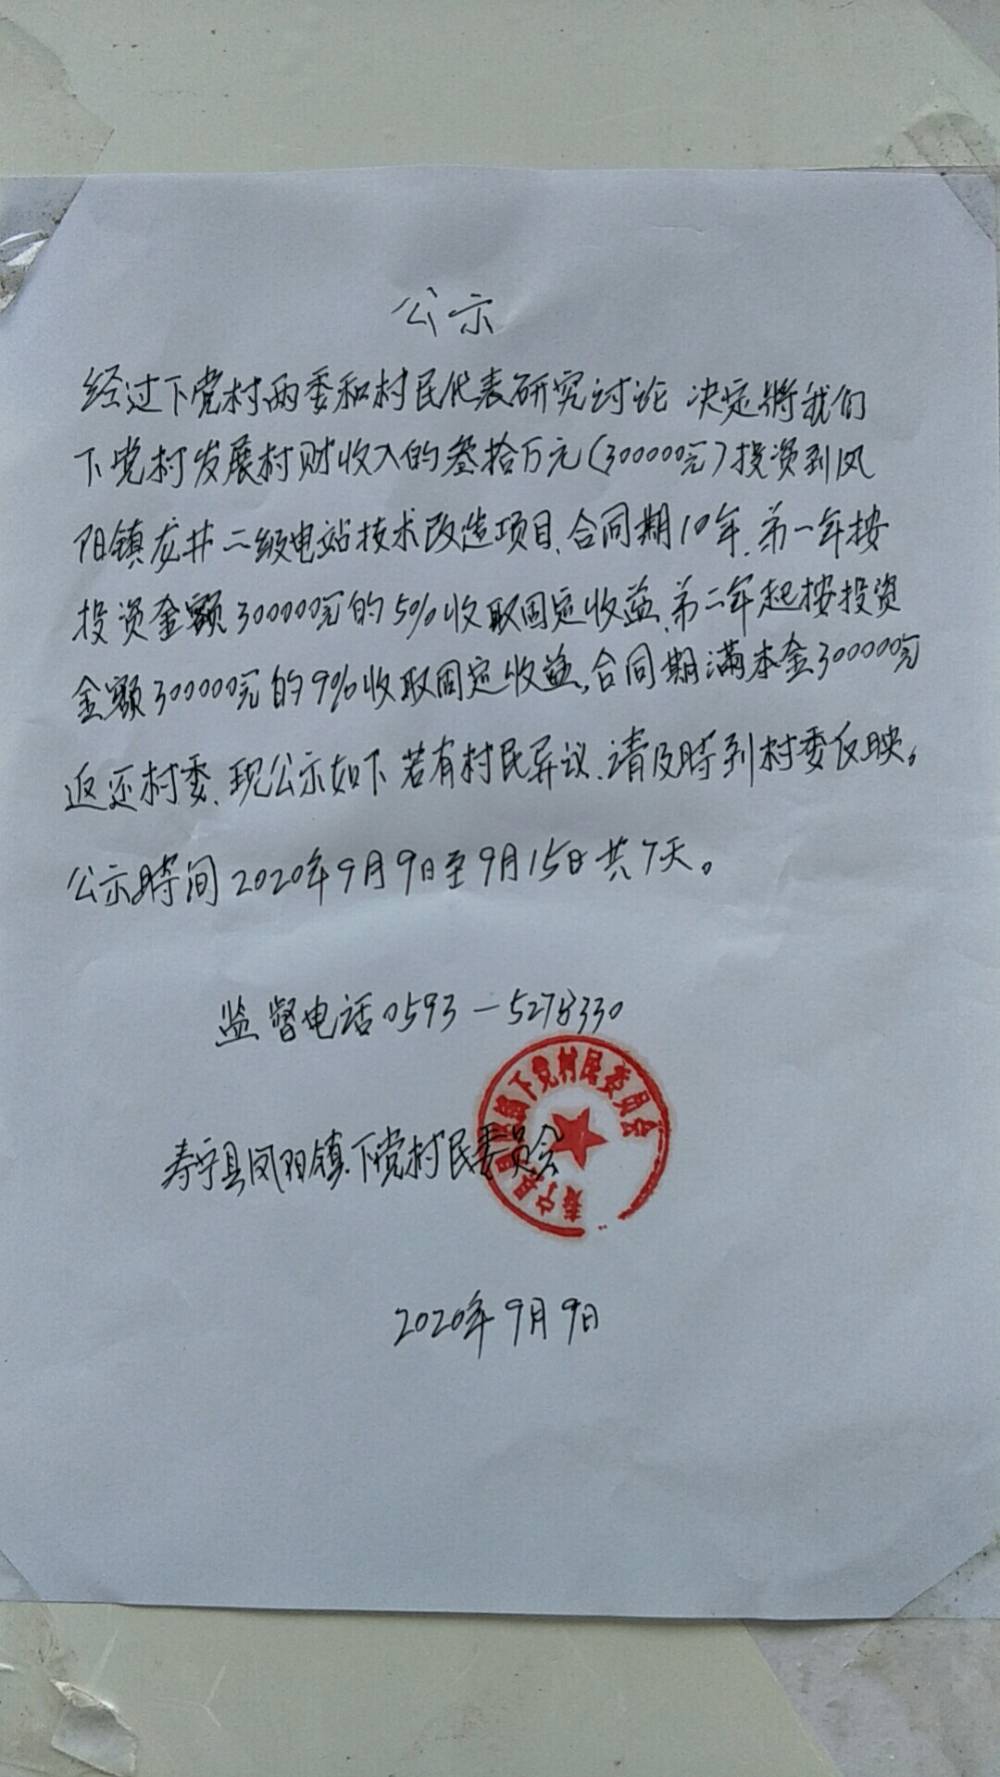 公示
经过下党村两委和村民代表研究讨论 决定将我们
下党村发展村财收入的叁拾万元(300000元)投资到凤
阳镇龙井二级电站技术改造项目、合同期10年、第一年按
投资金额300000元的5%收取固定收益、第二年起按投资
金额300000元的9%收取固定收益,合同期满本金300000元
返还村委、现公示如下 若有村民异议、请及时到村委反映。
公示时间2020年9月9日至9月15日共7天。
监督电话0593-5278330
寿宁县凤阳镇下党村民委员会
寿宁县凤阳镇下党村民委员会
2020年9月9日